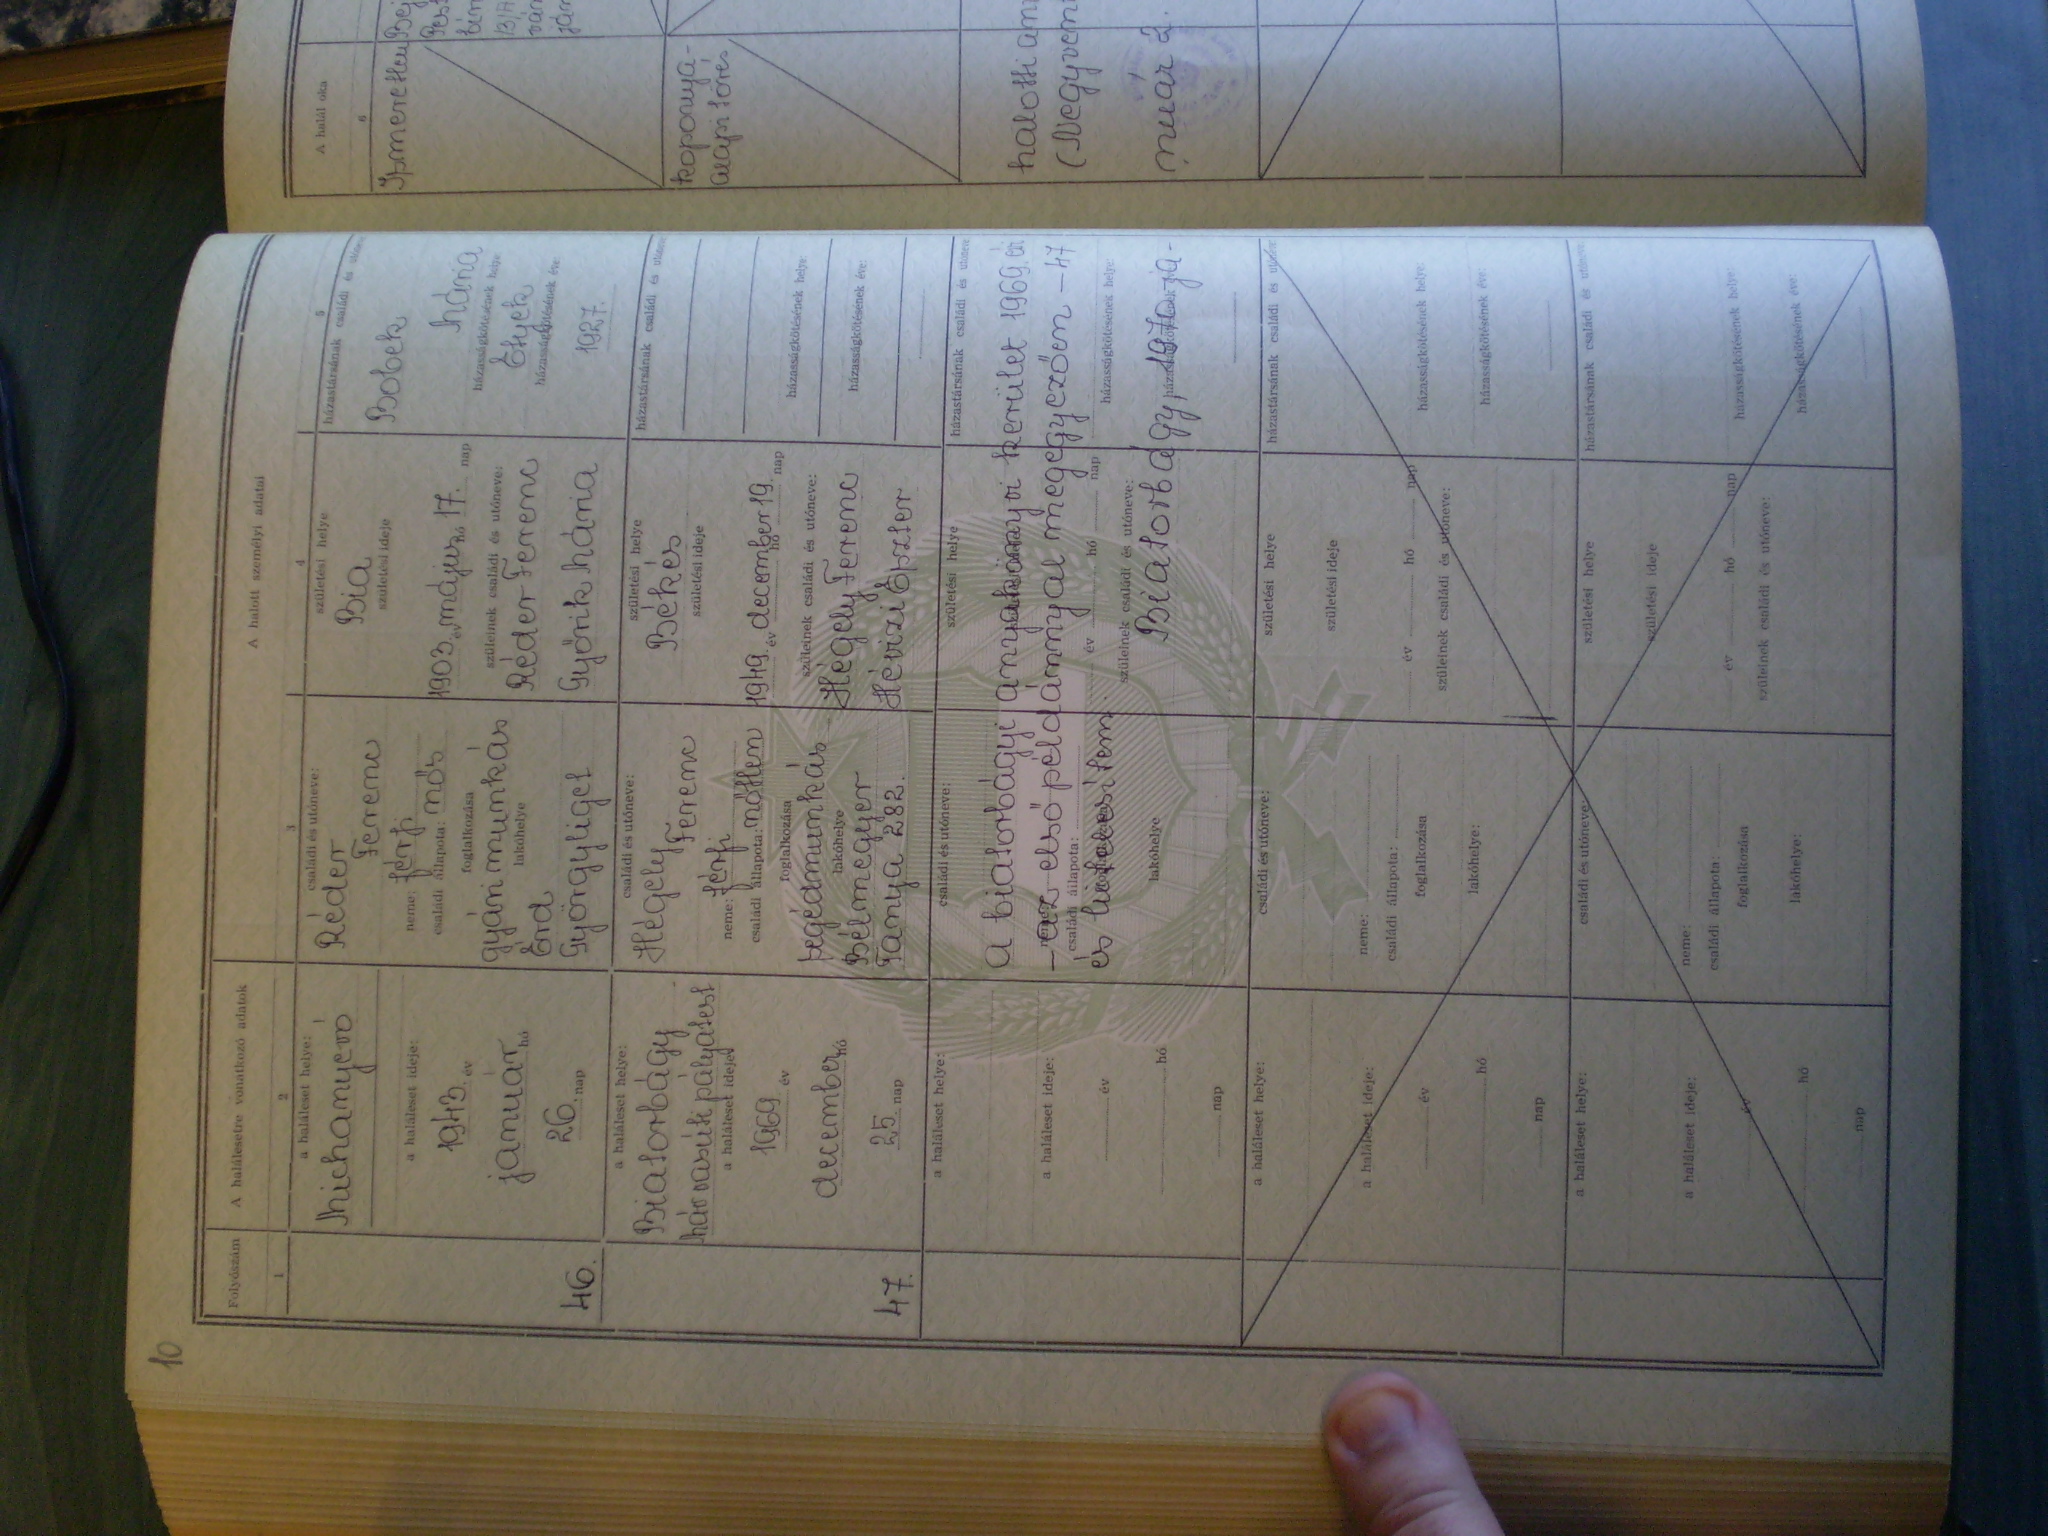 10
Folyószám
A halálesetre vonatkozó adatok
A halott személyi adatai
A halál oka
1
2
3
4
5
6
a haláleset helye:
Michanyero
a haláleset ideje:
1943. év
január hó
26. nap
46.
családi és utóneve:
Réder
Ferenc
neme: férfi
családi állapota: nős
foglalkozása
gyári munkás
lakóhelye
Érd
Györgyliget
születési helye
Bia
születési ideje
1903. év május hó 17. nap
szüleinek családi és utóneve:
Réder Ferenc
Győrik Mária
házastársának családi és utóneve
Bobek
Mária
házasságkötésének helye
Etyek
házasságkötésének éve:
1927.
Ismeretlen
a haláleset helye:
Biatorbágy
MÁV vasúti pályatest
a haláleset ideje:
1969 év
december hó
25. nap
47.
családi és utóneve:
Hégely
Ferenc
neme: férfi
családi állapota: nőtlen
foglalkozása
segédmunkás
lakóhelye
Bélmegyer
Tanya 282.
születési helye
Békés
születési ideje
1949. év december hó 19. nap
szüleinek családi és utóneve:
Hégely Ferenc
Hévizi Eszter
házastársának családi és utóneve
házasságkötésének helye:
házasságkötésének éve:
koponya-
alapi törés
a haláleset helye:
a haláleset ideje:
év
hó
nap
családi és utóneve:
neme:
családi állapota:
foglalkozása
lakóhelye
születési helye
év hó nap
szüleinek családi és utóneve:
házastársának családi és utóneve
házasságkötésének helye:
A biatorbágyi anyakönyvi kerület 1969 évi halotti
- az első példánnyal megegyezően - 47 (Negyven
és hitelesítem.
Biatorbágy, 1970 ja-
nuár 2.
a haláleset helye:
a haláleset ideje:
év
hó
nap
családi és utóneve:
neme:
családi állapota:
foglalkozása
lakóhelye:
születési helye
születési ideje
év hó nap
szüleinek családi és utóneve:
házastársának családi és utóneve
házasságkötésének helye:
házasságkötésének éve:
a haláleset helye:
a haláleset ideje:
év
hó
nap
családi és utóneve:
neme:
családi állapota:
foglalkozása
lakóhelye:
születési helye
születési ideje
év hó nap
szüleinek családi és utóneve:
házastársának családi és utóneve
házasságkötésének helye:
házasságkötésének éve: